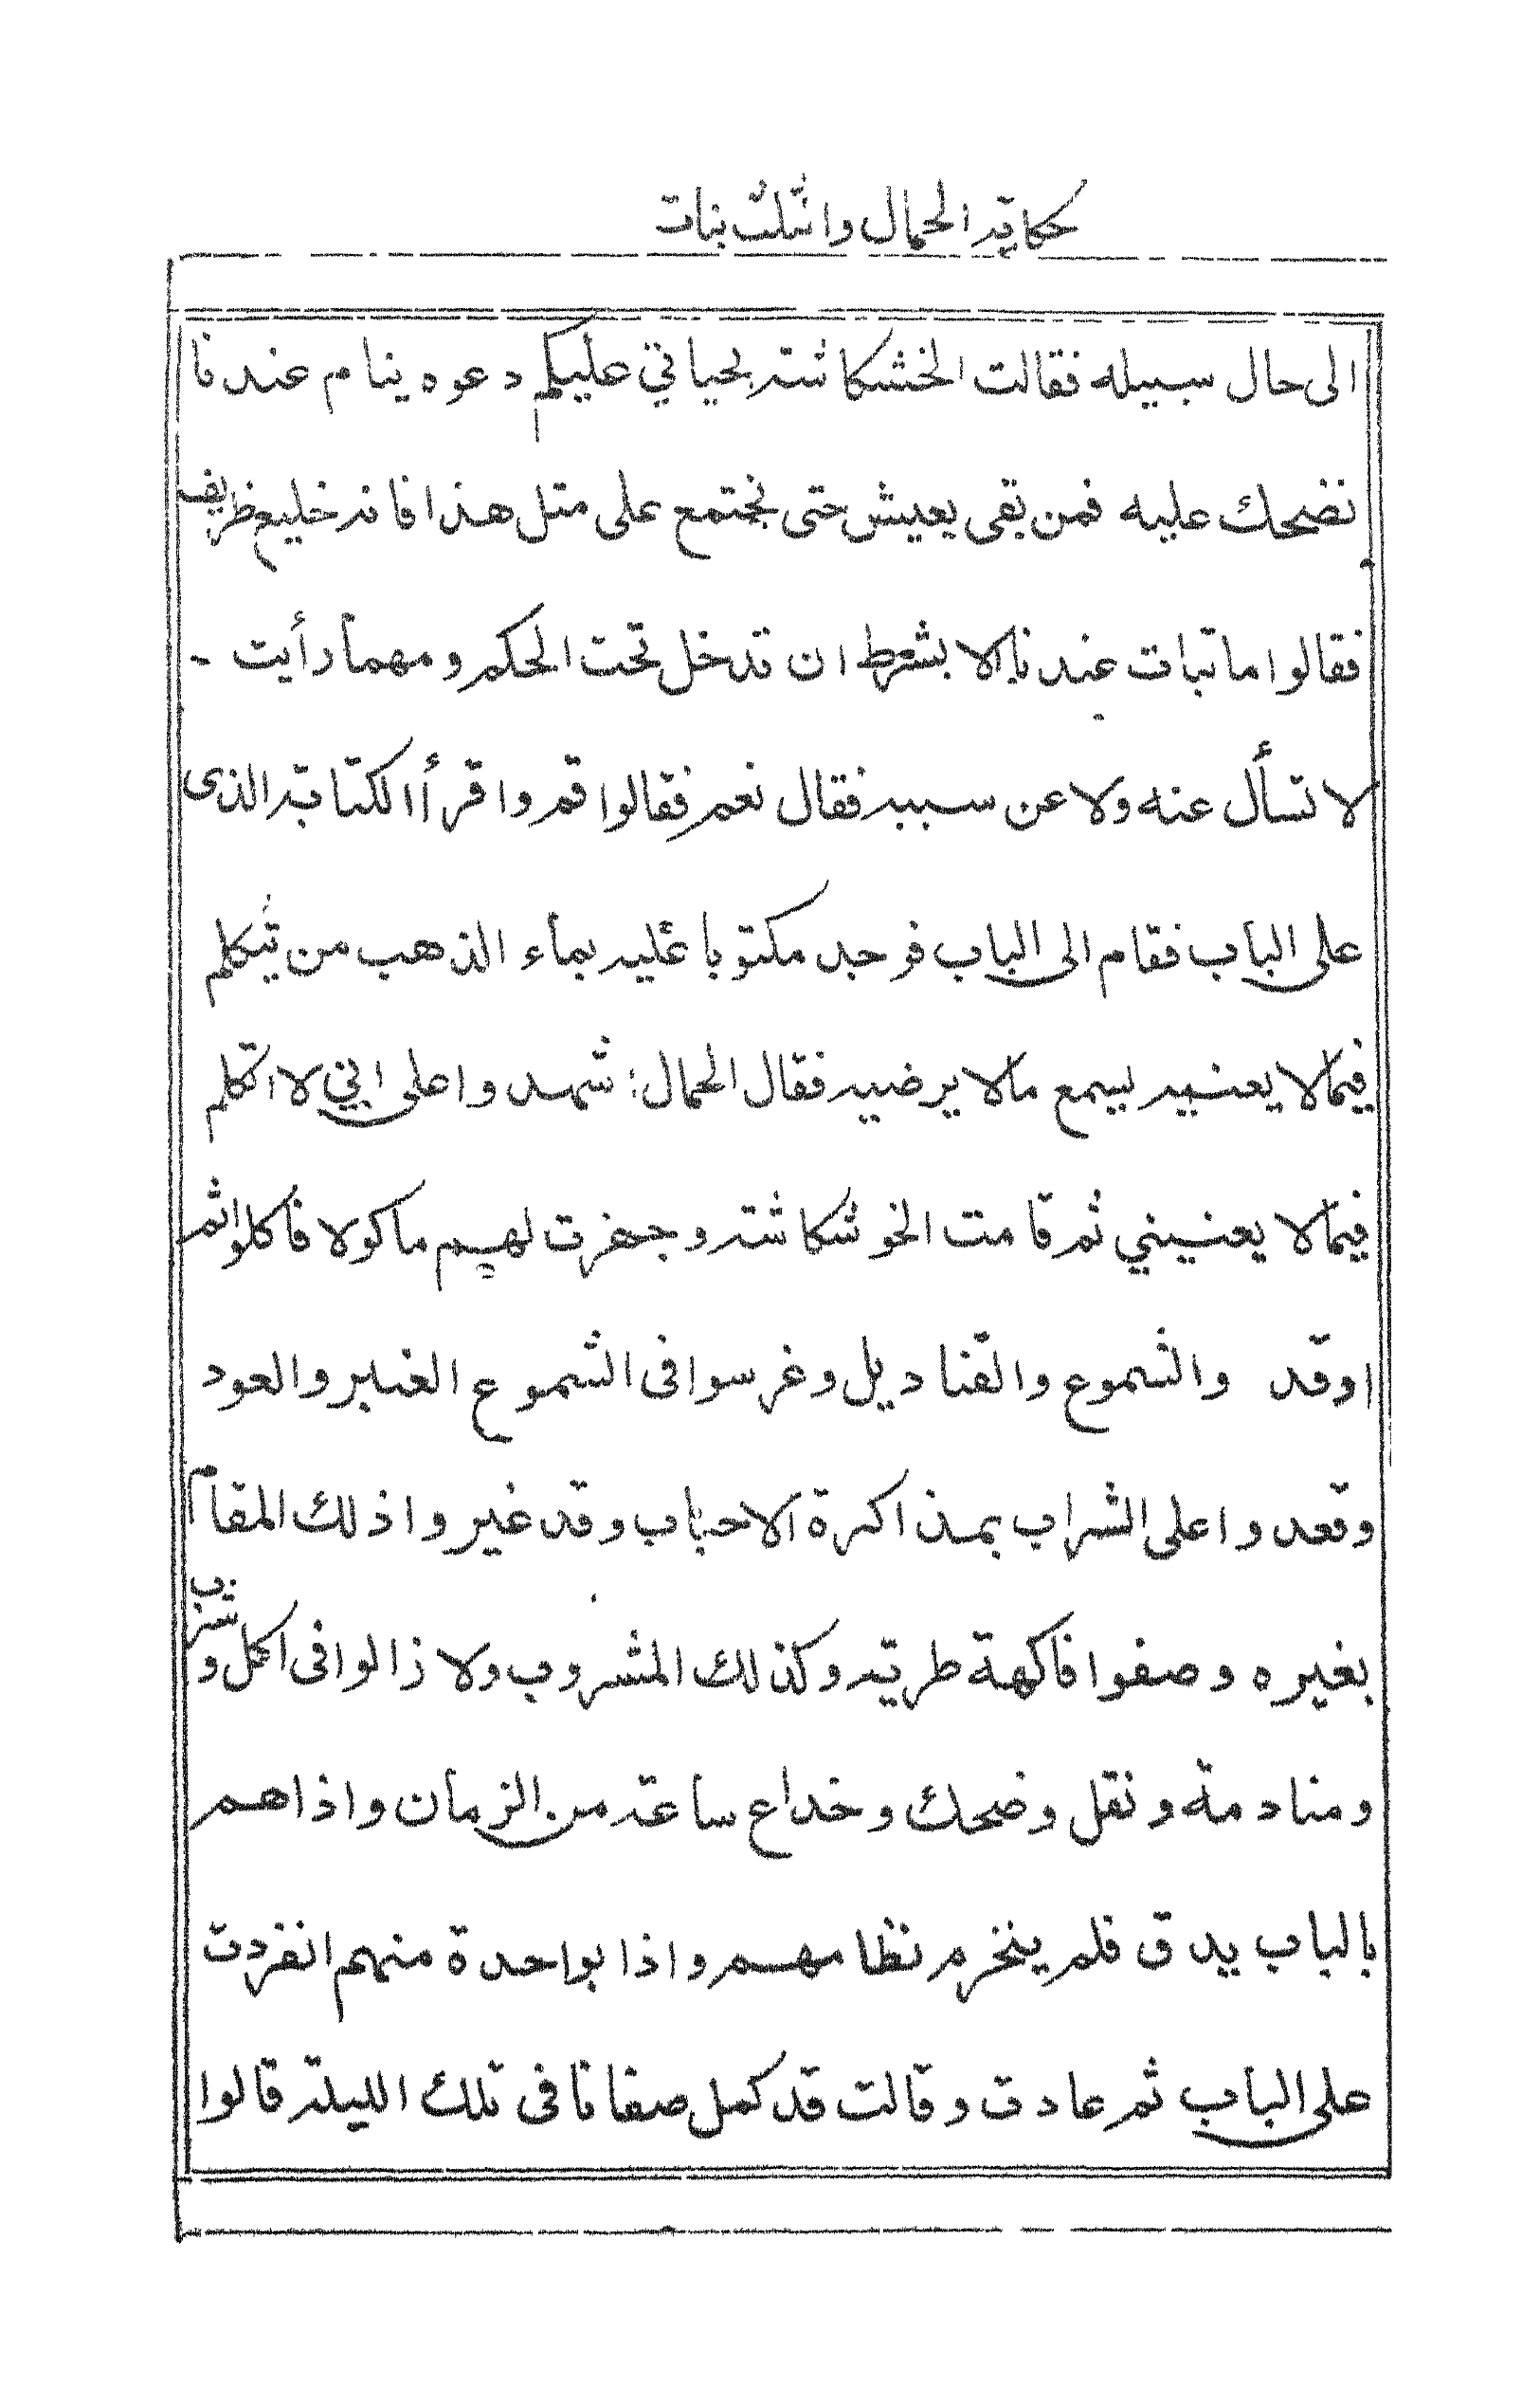 حكاية الحمال والثلث بنات
الى حال سبيله فقالت الخشكاشته بحياتي عليكم دعوه ينام عندنا
نضحك عليه فمن بقى يعيش حتى نجتمع على مثل هذا فانه خليع ظريف
فقالوا ما تبات عندنا الا بشرط ان تدخل تحت الحكم ومهما رأيت
لا تسأل عنه ولا عن سببه فقال نعم فقالوا قم واقرأ الكتابة الذى
على الباب فقام الى الباب فوجد مكتوبا عليه بماء الذهب من تكلم
فيما لا يعنيه ليسمع ما لا يرضيه فقال الحمال اشهدوا على اني لا اتكلم
فيما لا يعنيني ثم قامت الخوشكاشته وجهزت لهم ماكولا فاكلوا ثم
اوقد والشموع والقناديل وغرسوا فى الشموع العنبر والعود
وقعدوا على الشراب بمذاكرة الاحباب وقد غيروا ذلك المقام
بغيره وصفوا فاكهة طريه وكذلك المشروب ولا زالوا فى اكل وشرب
ومنادمة ونقل وضحك وخداع ساعة من الزمان واذا هم
بالباب يدق فلم ينخرم نظامهم واذا بواحدة منهم انفردت
على الباب ثم عادت وقالت قد كمل صفانا فى تلك الليلة قالوا